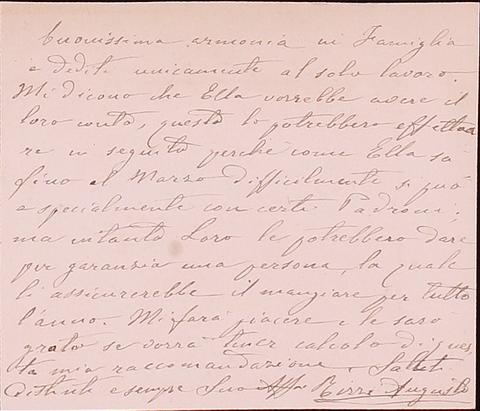 buonissima armonia in Famiglia
e dediti unicamente al solo lavoro.
Mi dicono che Ella vorrebbe avere il
loro conto, questo lo potrebbero effettua
re in seguito perchè come Ella sa
fino al Marzo difficilmente si può
e specialmente con certi Padroni,
ma intanto Loro le potrebbero dare
per garanzia una persona, la quale
li assicurerebbe il mangiare per tutto
l'anno. Mi farà piacere e le sarò
grato se vorrà tener calcolo di ques
ta mia raccomandazione. Saluti
distinti e sempre Suo Aff. Augusto